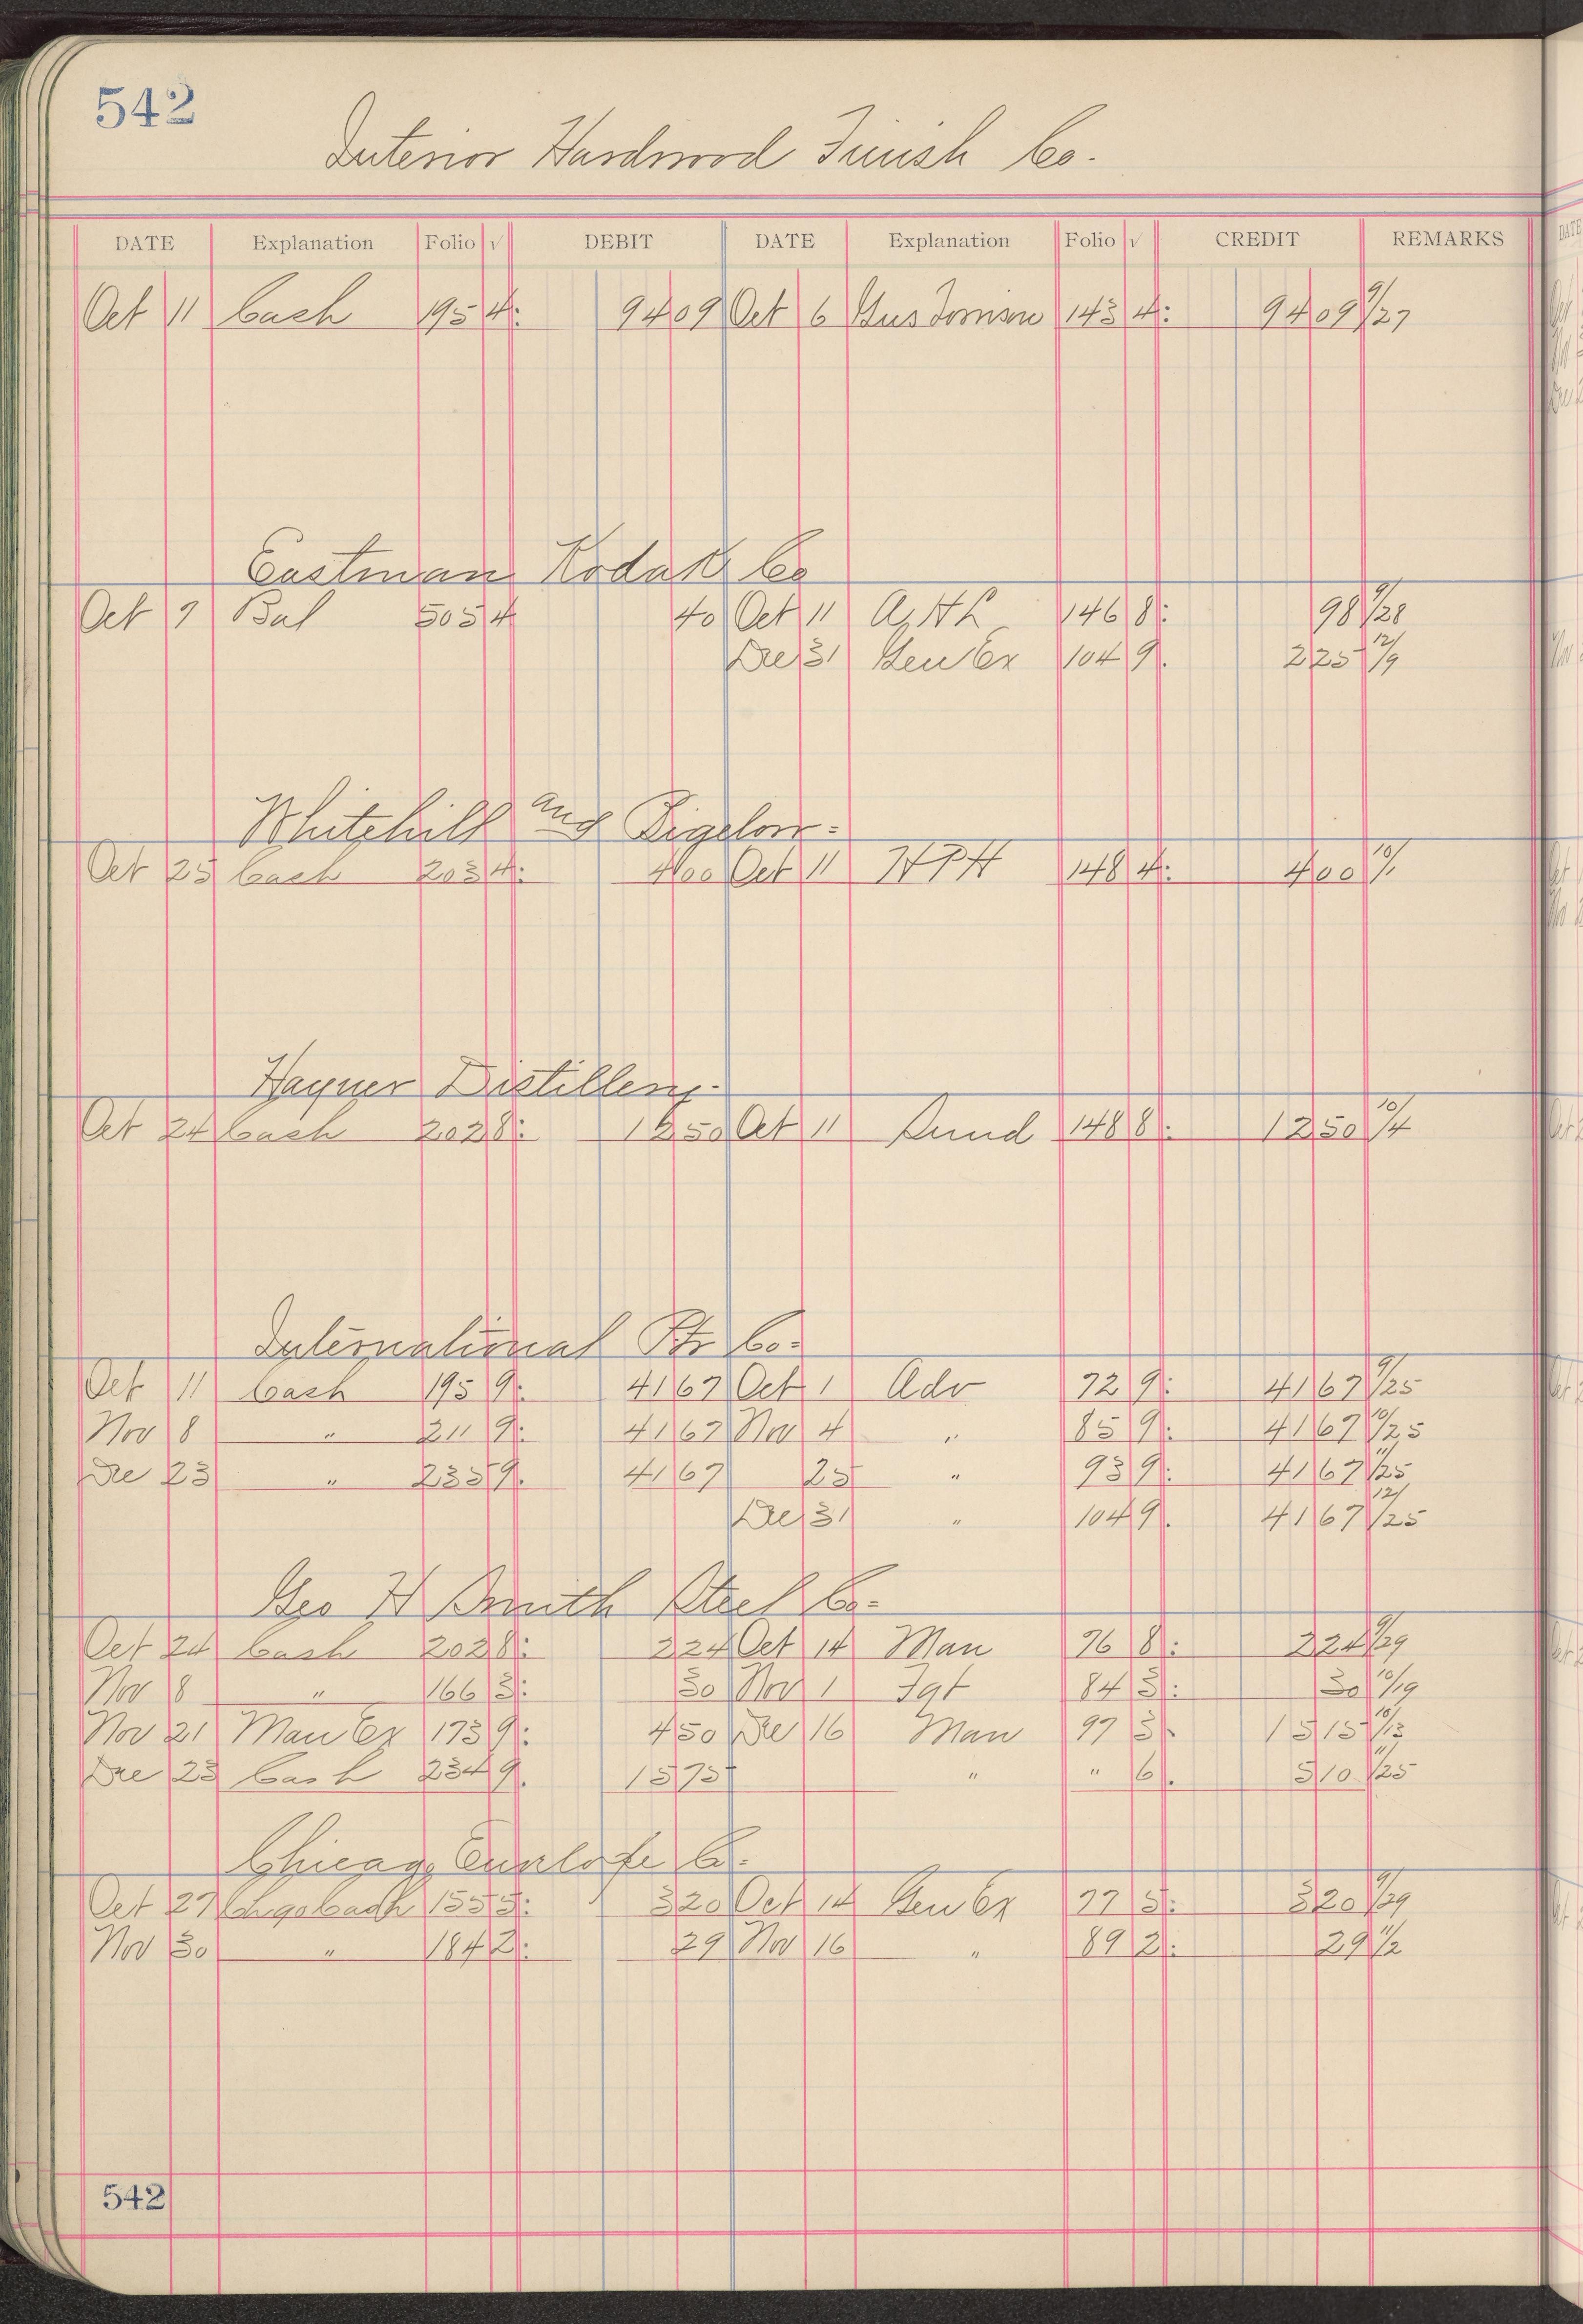 542
Interior Hardwood Finish Co.
DATE Explanation Folio √ DEBIT DATE Explanation Folio √ CREDIT REMARKS
Oct 11 Cash 195 4: 94 09 Oct 6 Gus 143 4: 94 09 9/27
Eastman Kodak Co
Oct 1 Bal 505 4 40 Oct 11 146 8: 98 9/28
Dec 31 Gen Ex 104 9. 2 25 12/9
Whitehill and Bigelow.
Oct 25 Cash 203 4: 4 00 Oct 11 HPH 148 4: 4 00
Hayner Distillery.
Oct 24 Cash 202 8: 12 50 Oct 11 Sund 148 8: 12 50 10/4
International Co.
Oct 11 Cash 195 9: 41 67 Oct 1 Adv 72 9: 41 67 9/25
Nov 8 " 211 9: 41 67 Nov 4 " 85 9: 41 67 10/25
Dec 23 " 235 9. 41 67 25 " 93 9: 41 67 11/25
Dec 31 " 104 9. 41 67 12/25
Geo H Smith Steel Co.
Oct 24 Cash 202 8: 2 24 Oct 14 Man 76 8: 2 24 9/29
Nov 8 " 166 3: 30 Nov 1 Fgt 84 3: 30 10/19
Nov 21 Man Ex 173 9: 4 50 Dec 16 Man 97 3. 15 15 10/13
Dec 23 Cash 234 9. 15 75 " " 6. 5 10 11/25
Chicago Envelope Co.
Oct 27 Chgo Cash 155 5: 3 20 Oct 14 Gen Ex 77 5: 3 20 9/29
Nov 30 " 184 2: 29 Nov 16 " 89 2: 29 11/2
542